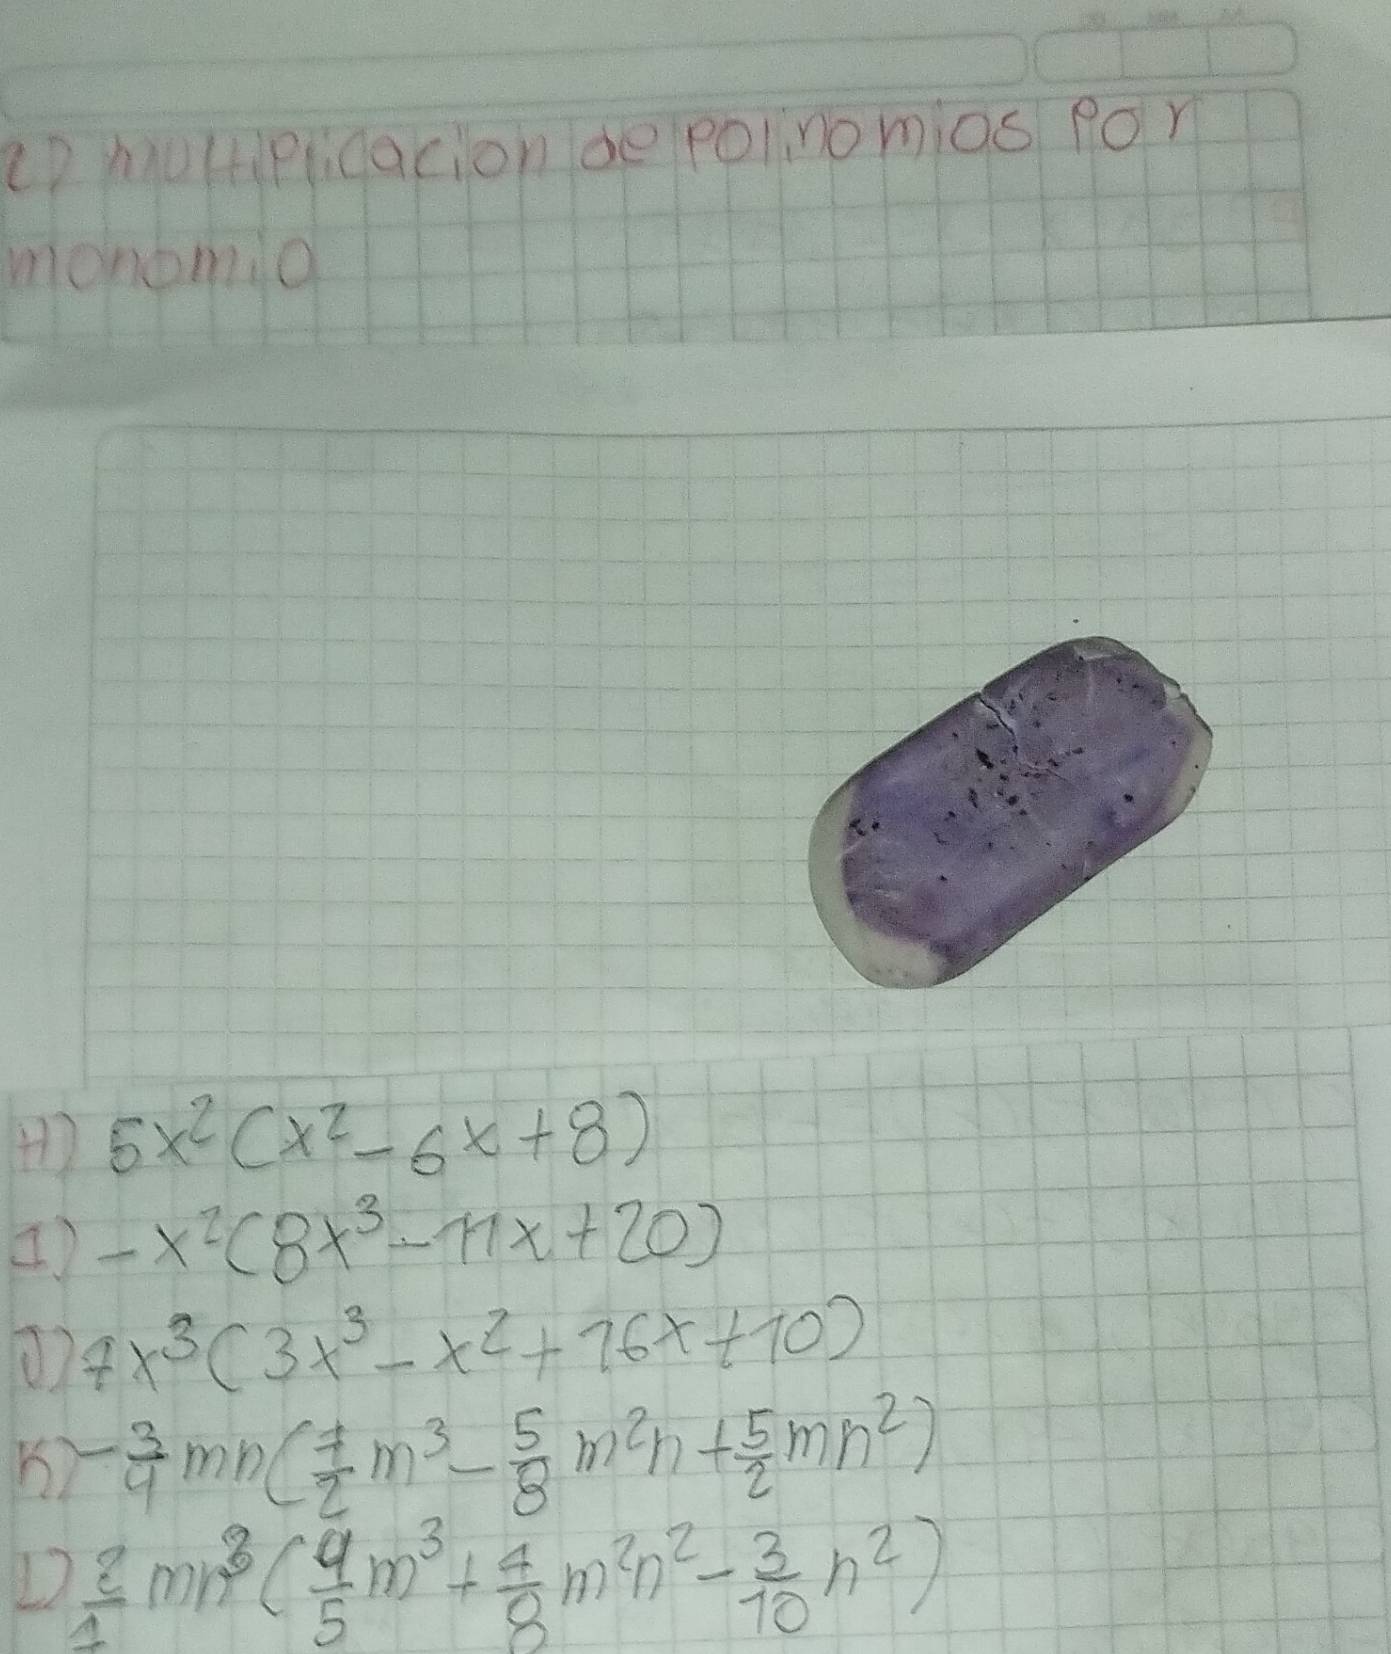 2) multiplicacion de polinomios por
monomio
H) 5x²(x²-6x+8)
I) -x²(8x³-11x+20)
J) 7x³(3x³-x²+16x+10)
K) -3/4 mn(7/2 m³-5/8 m²n+5/2 mn²)
L) mn³( /5 m³+ /8 m²n²-3/10 n²)